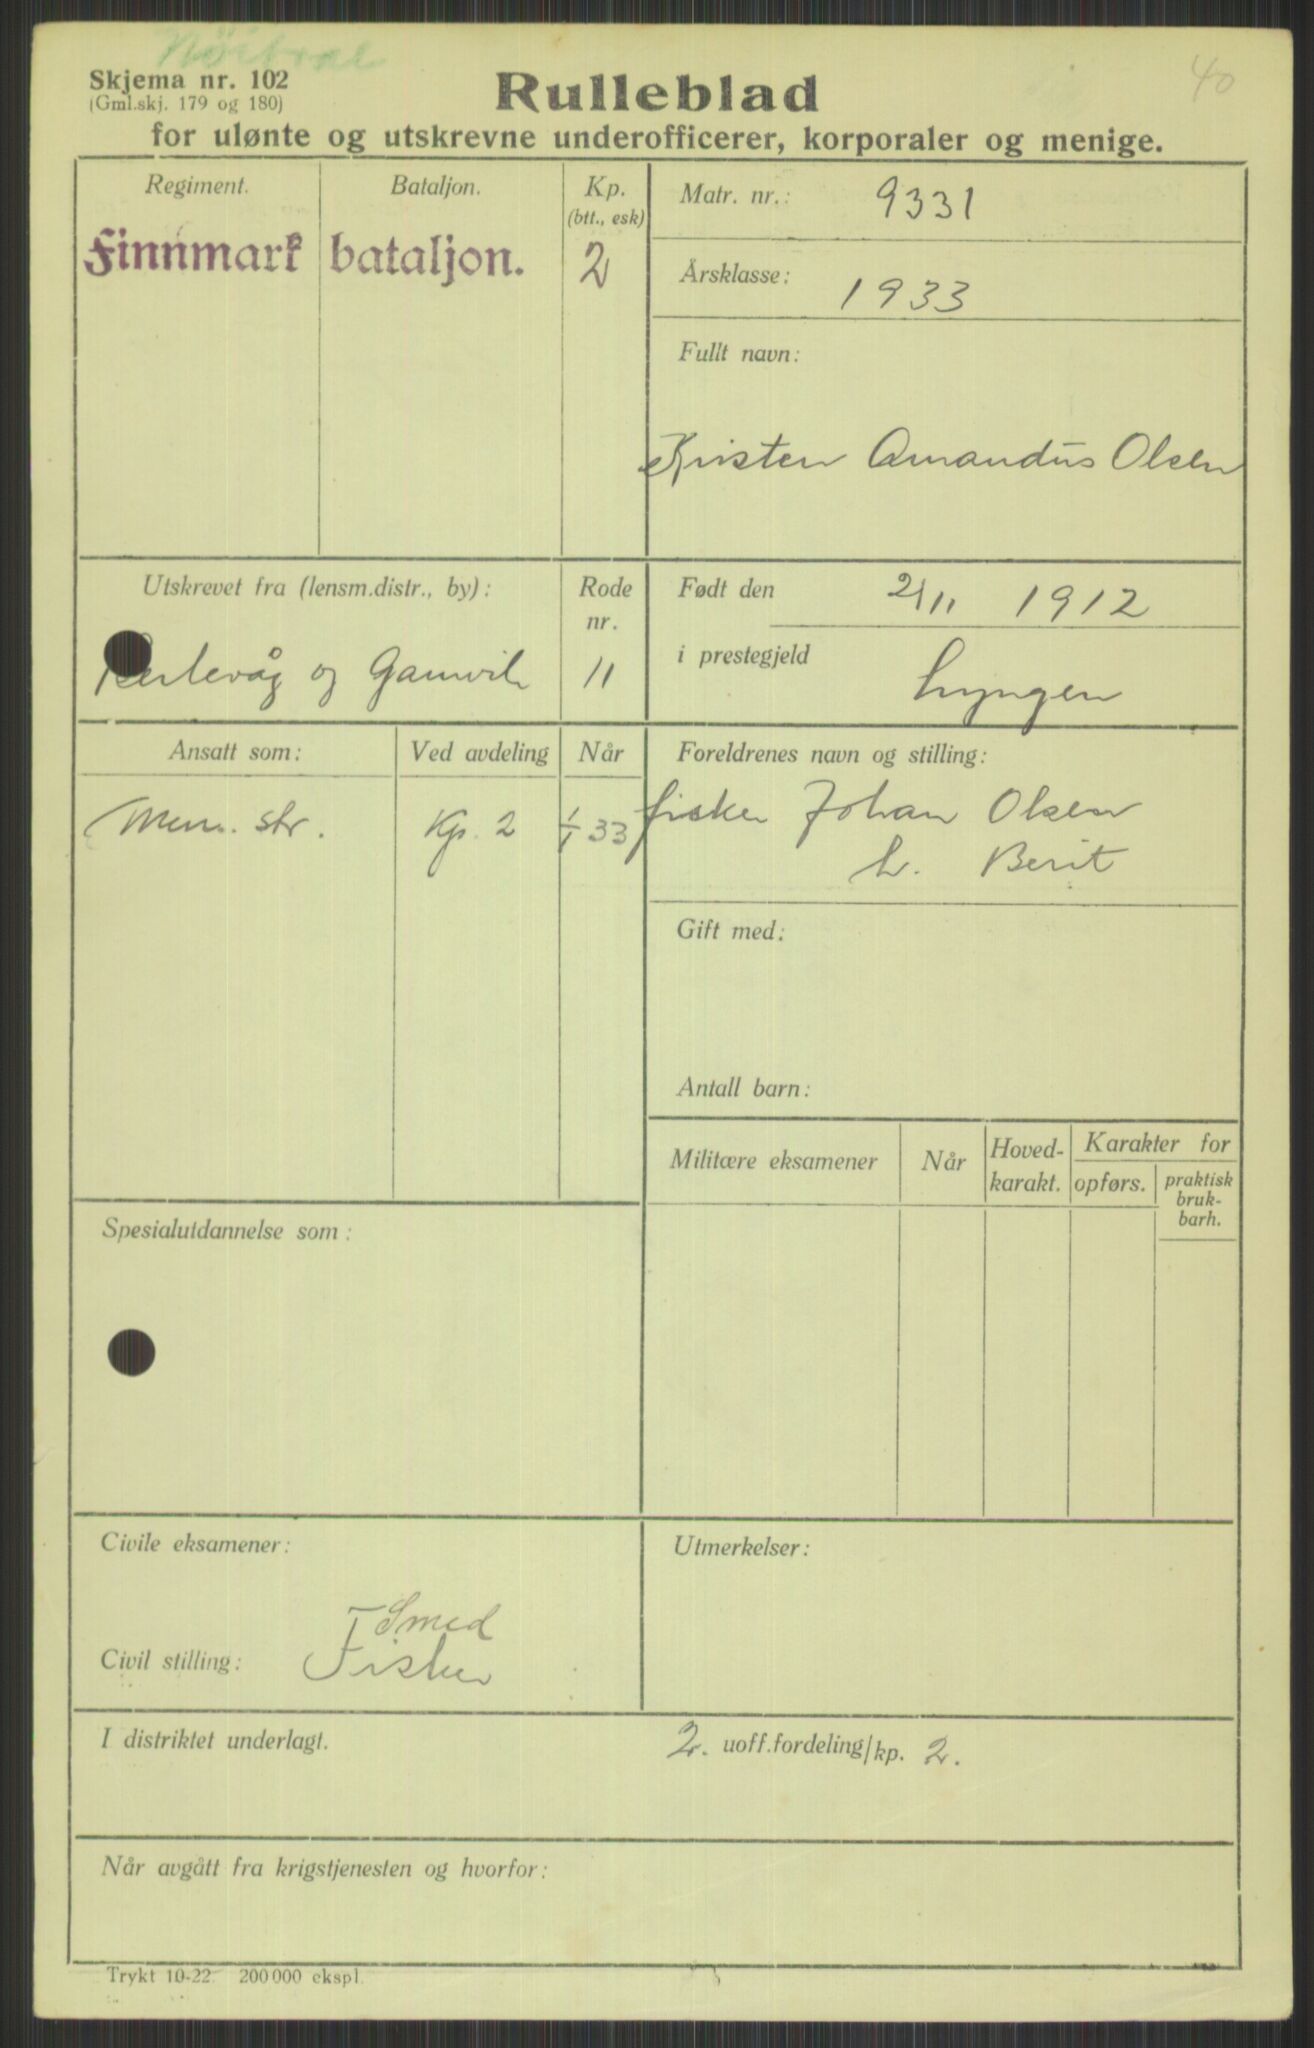 Skjema nr. 102
(Gml.skj. 179 og 180)
40
Rulleblad
for ulønte og utskrevne underofficerer, korporaler og menige.
Regiment. Bataljon. Kp.
(btt., esk)
Finnmark bataljon. 2
Matr. nr.: 9331
Årsklasse: 1933
Fullt navn:
Kristen Amandus Olsen
Utskrevet fra (lensm.distr., by): Rode
nr.
Berlevåg og Gamvik 11
Født den 2/11 1912
i prestegjeld Lyngen
Ansatt som: Ved avdeling Når
Men. str. Kp. 2 1/1 33
Foreldrenes navn og stilling:
fisker Johan Olsen
h. Berit
Gift med:
Antall barn:
Militære eksamener Når Hoved-
karakt. Karakter for
opførs. praktisk
bruk-
barh.
Spesialutdannelse som:
Civile eksamener:
Smed
Civil stilling: Fisker
Utmerkelser:
I distriktet underlagt. 2. uoff.fordeling/kp. 2.
Når avgått fra krigstjenesten og hvorfor:
Trykt 10-22. 200 000 ekspl.